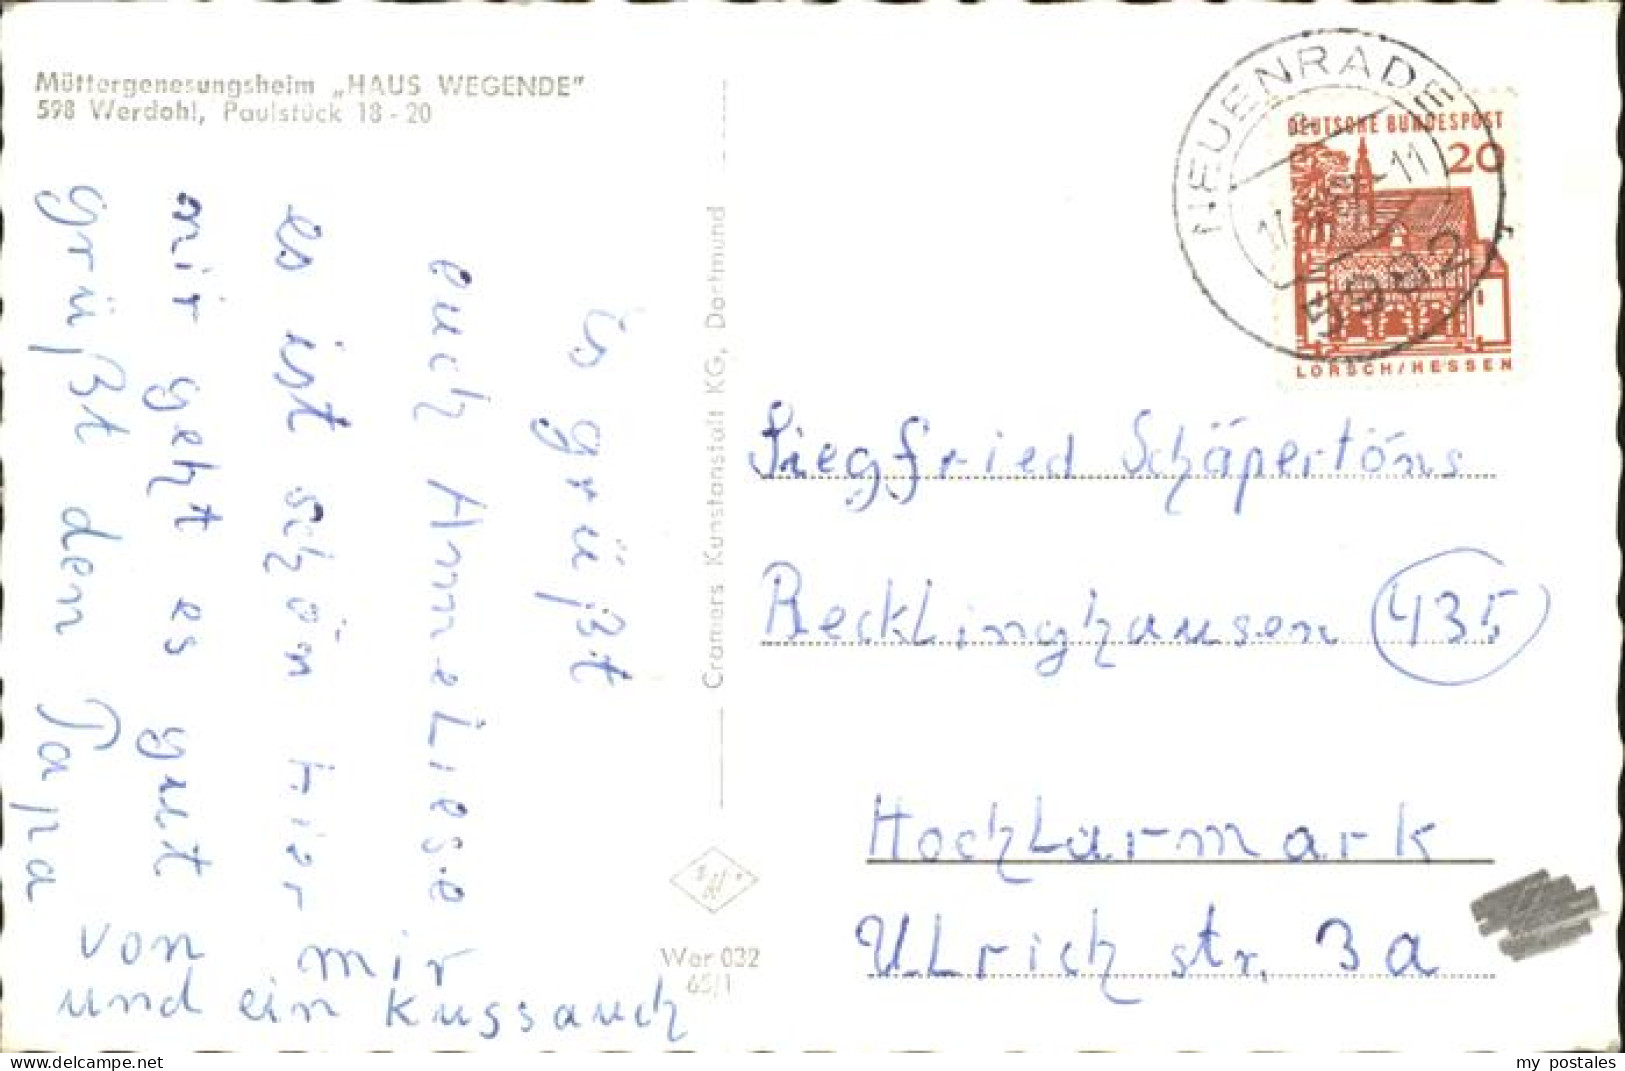 Müttergenesungsheim „HAUS WEGENDE"
598 Werdohl, Paulstück 18-20
Es grüßt
euch AnneLiese
es ist schön hier
mir geht es gut
grüßt den Papa
von mir
und ein Kuss auch
Cramers Kunstanstalt KG, Dortmund
Wer 032
65/1
NEUENRADE
5982
DEUTSCHE BUNDESPOST
20
LORSCH/HESSEN
Siegfried Schäpertöns
Recklinghausen 435
Hochlarmark
Ulrich str. 3a
my postales